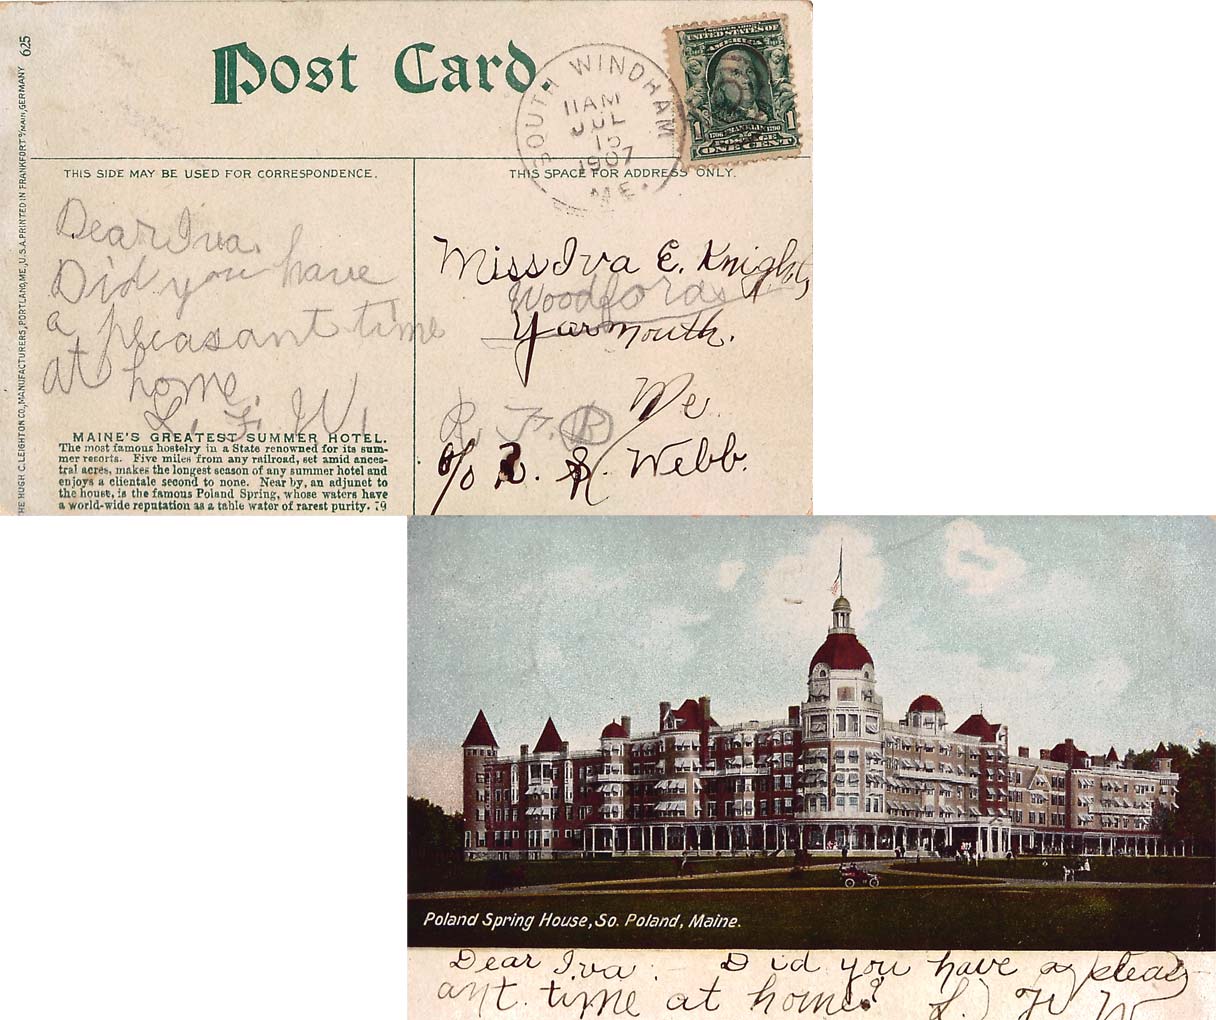 Post Card.
SOUTH WINDHAM
11 AM
JUL
15
1907
ME.
UNITED STATES OF
AMERICA
1706 FRANKLIN 1790
1 POSTAGE 1
ONE CENT
THIS SIDE MAY BE USED FOR CORRESPONDENCE.
THIS SPACE FOR ADDRESS ONLY.
THE HUGH C. LEIGHTON CO., MANUFACTURERS, PORTLAND, ME., U.S.A. PRINTED IN FRANKFORT o/MAIN, GERMANY 625
Dear Iva.
Did you have
a pleasant time
at home.
L. F. W.
Miss Iva E. Knight,
Woodfords
Yarmouth.
Me.
R. F. D
c/o S. Webb.
MAINE'S GREATEST SUMMER HOTEL.
The most famous hostelry in a State renowned for its sum-
mer resorts. Five miles from any railroad, set amid ances-
tral acres, makes the longest season of any summer hotel and
enjoys a clientale second to none. Near by, an adjunct to
the house, is the famous Poland Spring, whose waters have
a world-wide reputation as a table water of rarest purity. 79
Poland Spring House, So. Poland, Maine.
Dear Iva: - Did you have a pleas-
ant time at home? L. F. W